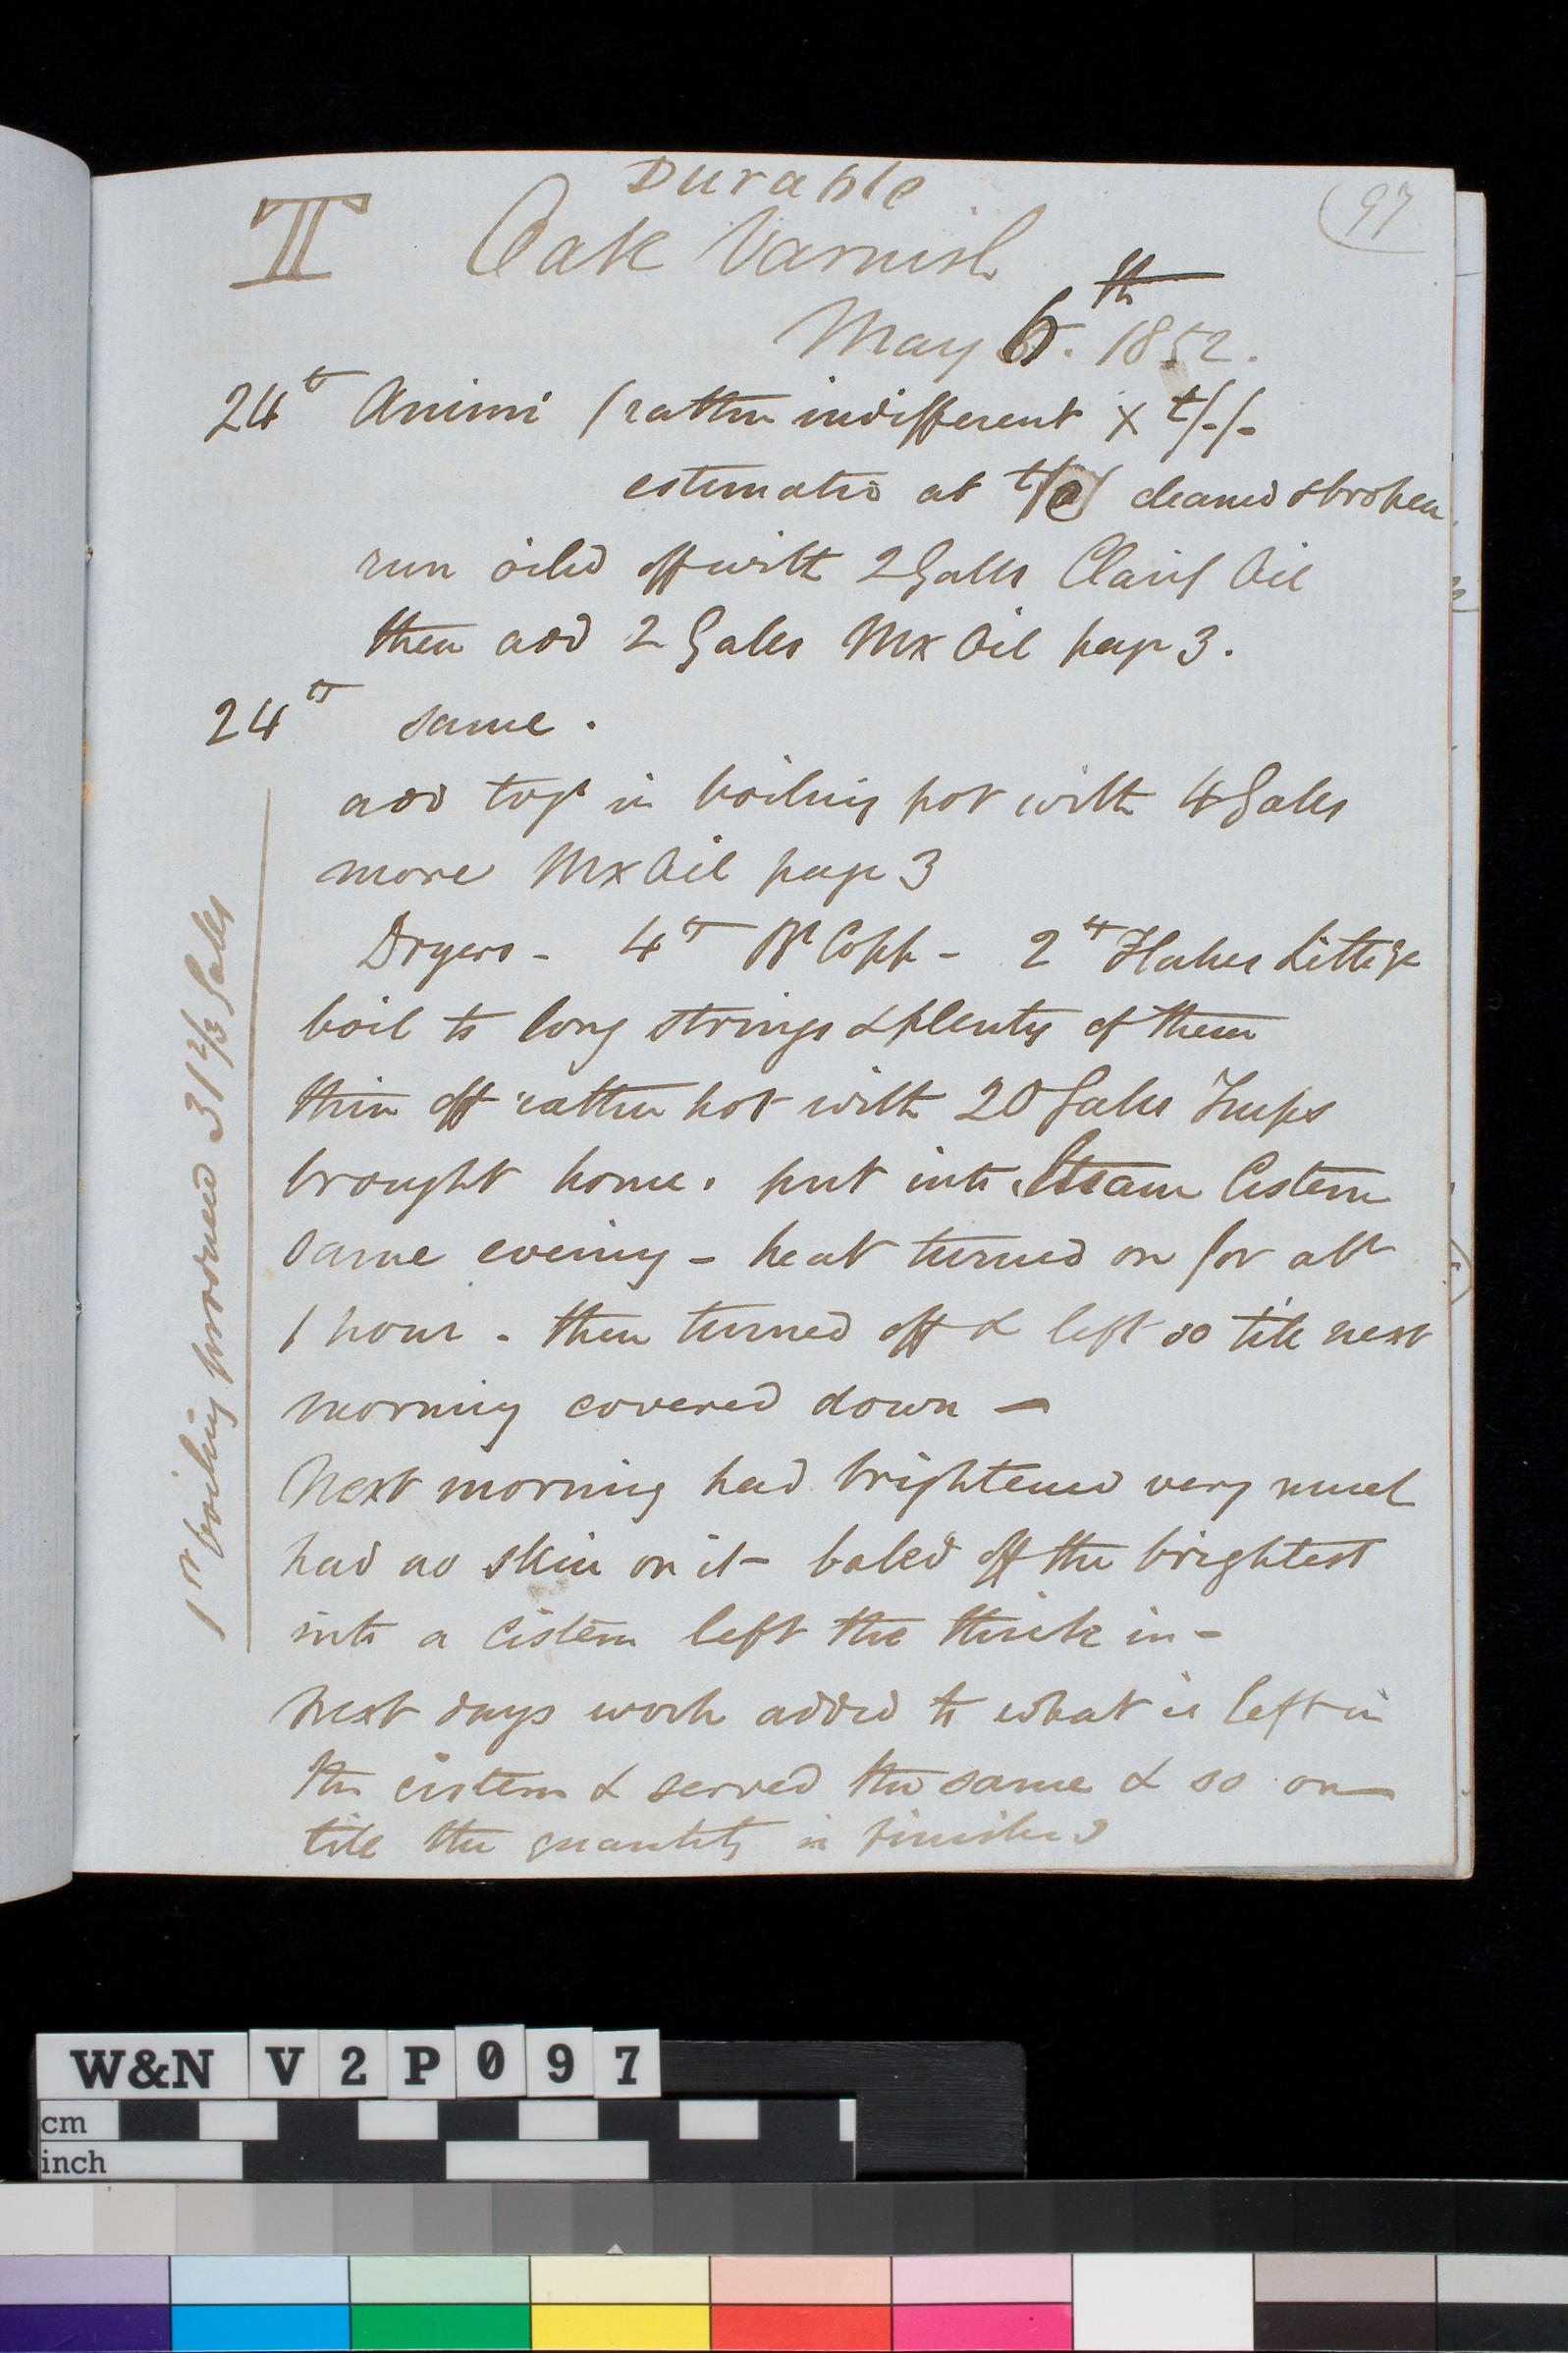 97
Durable
II Oak Varnish
May 6th. 1852.
24 lb Animi (rather indifferent x t/-/-
estimated at t/ / cleaned & broken
run oiled off with 2 Galls Clarif Oil
then add 2 Galls Mx Oil page 3.
24 lb same.
add togr in boiling pot with 4 Galls
more Mx Oil page 3
Dryers - 4 lb Wt Copp - 2 lb Flakes Littge
boil to long strings & plenty of them
thin off rather hot with 20 Galls Turps
brought home. put into Steam Cistern
same evening - heat turned on for abt
1 hour - then turned off & left so till next
morning covered down -
Next morning had brightened very much
had no skin on it - baled off the brightest
into a cistern left the thick in -
next days work added to what is left in
the cistern & served the same & so on
till the quantity is finished
1st boiling produced 31 2/3 Galls
W&N V2P097
cm
inch